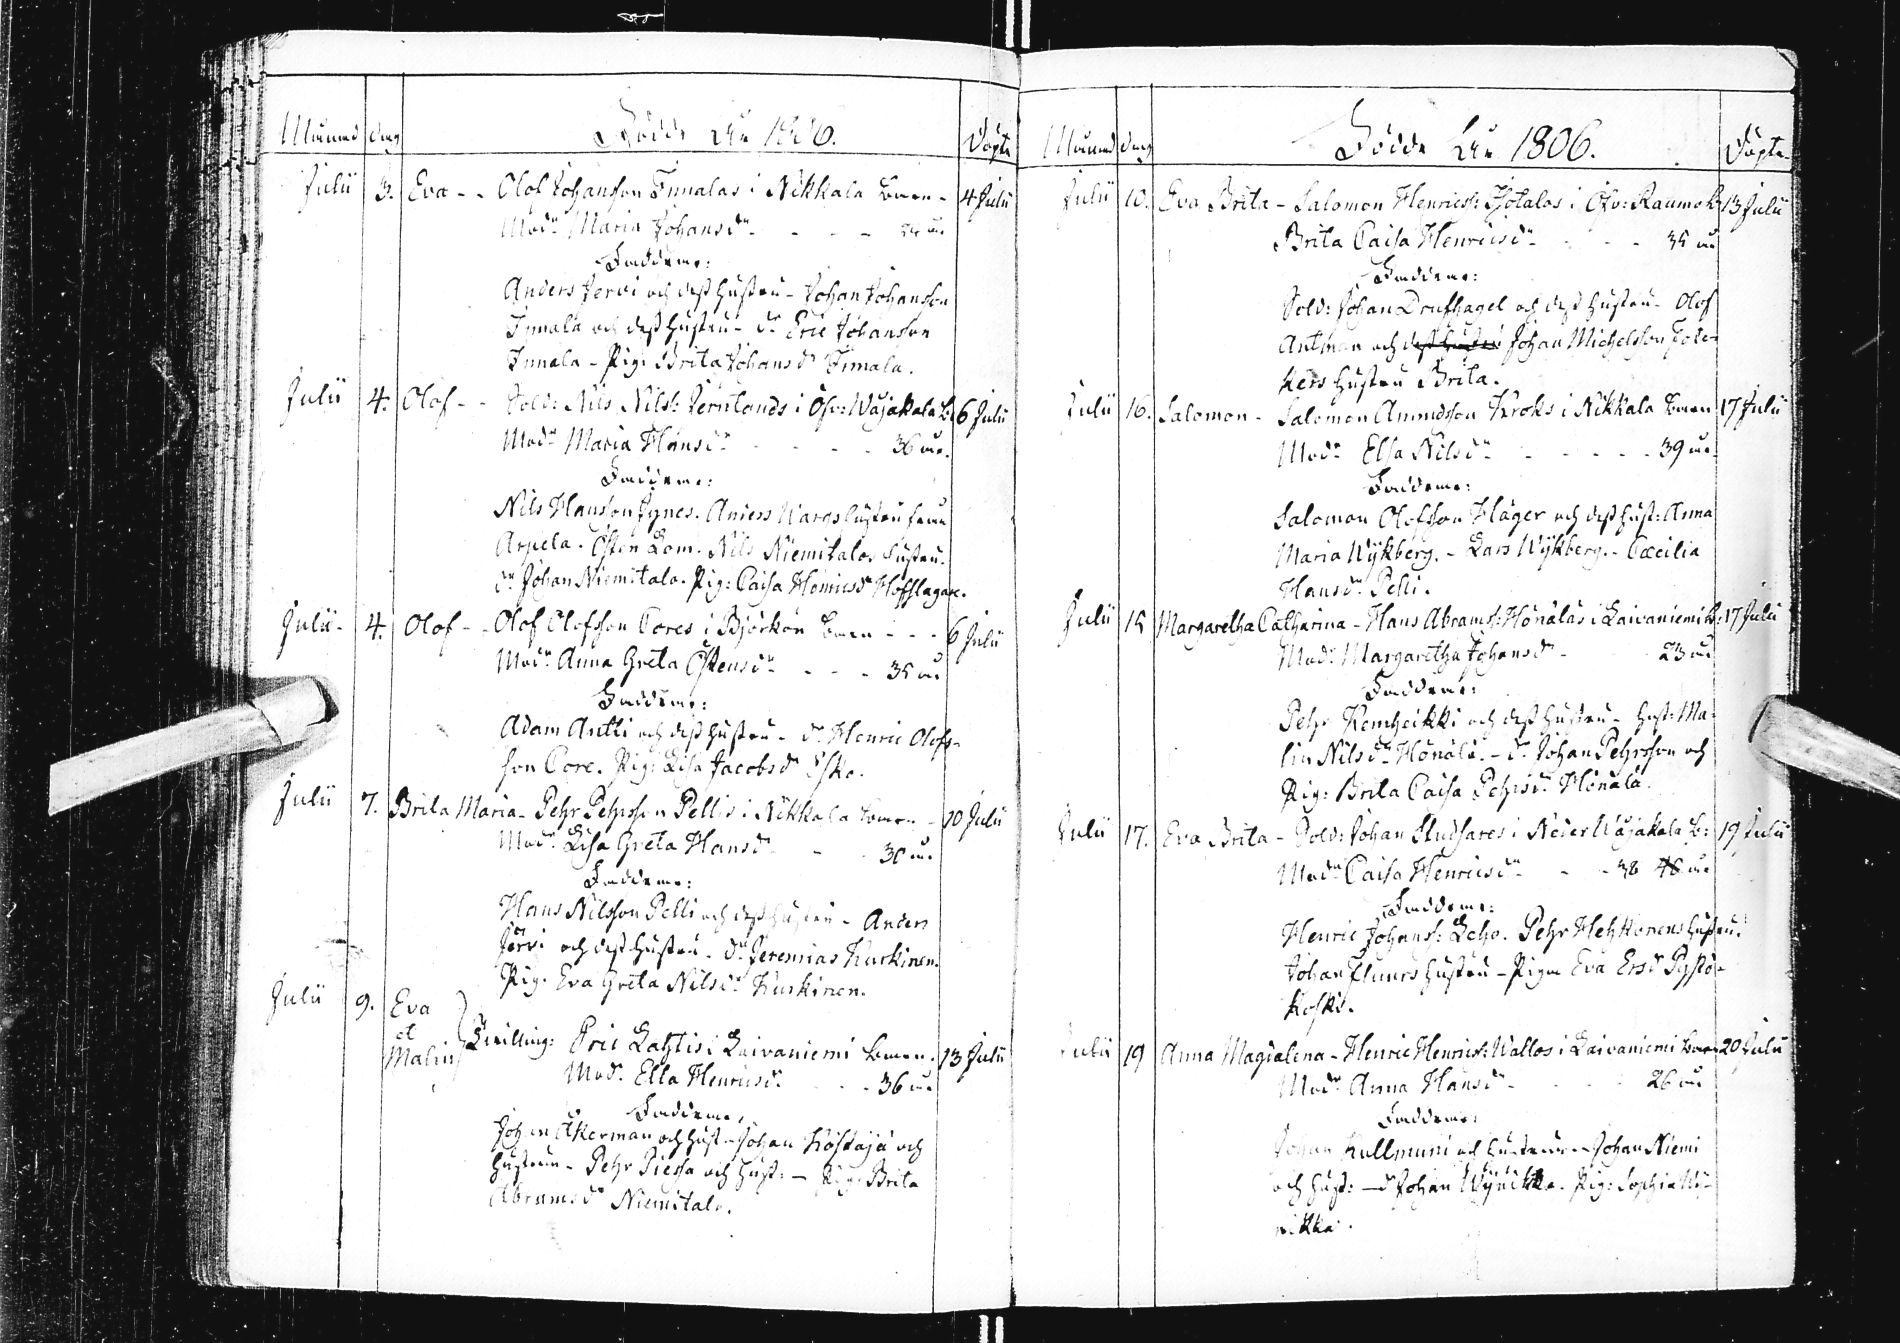 Månad dag Födde År 1806. Döpte
Julii 3. Eva - - Olof Johansson Innalas i Nikkala barn - 4 Julii
Modr Maria Johansdr - - - år
Faddrar:
Anders Jervi och dess hustru - Johan Johansson
Innala och dess hustru - dr Eric Johansson
Innala - Pig: Brita Johansdr Innala.
Julii 4. Olof - - Sold: Nils Nils: Jernlands i Öfv: Wäjakala b: 6 Julii
Modr Maria Hansdr - - - - 36 år.
Faddrar:
Nils Hansson Jynes. Anders Wargs hustru från
Arpela. Östen Lom. Nils Niemitalos hustru.
dr Johan Niemitalo. Pig: Caisa Henricsdr Hofslagare.
Julii - 4. Olof - - Olof Olofsson Cores i Björkön barn - - - 6 Julii
Modr Anna Greta Östensdr - - - 35 år
Faddrar:
Adam Antti och dess hustru - dr Henric Olofs-
son Core. Pig: Lisa Jacobsdr Esko.
Julii 7. Brita Maria - Pehr Pehrsson Pellis i Nikkala barn - 10 Julii
Modr Lisa Greta Hansdr - - 30 år.
Faddrar:
Hans Nilsson Pelli och dess hustru - Anders
Jervi och dess hustru - dr Jeremias Kurkinen.
Pig: Eva Greta Nilsdr Kurkinen.
Julii 9. Eva
et
Malin
Tvilling: Eric Lahtis i Laivaniemi barn. 13 Julii
Modr Ella Henricsdr - - - 36 år.
Faddrar,
Johan Åkerman och hust - Johan Koskaja och
hustrun - Pehr Piessa och hust: - Pig: Brita
Abramsdr Niemitalo.
Månad dag Födde År 1806. Döpte
Julii 10. Eva Brita - Salomon Henrics: Isotalos i Öfv: Raumo b: 13 Julii
Brita Caisa Henricsdr - - - 35 år
Faddrar:
Sold: Johan Drufhagel och dess hustru - Olof
Antman och dess hustru Johan Michelsson
kers hustru Brita.
Julii 16. Salomon - Salomon Amundsson Kroks i Nikkala barn 17 Julii
Modr Elsa Nilsdr - - - - - 39 år.
Faddrar:
Salomon Olofsson Häger och dess hust: Anna
Maria Wykberg. - Lars Wykberg. - Cæcilia
Hansdr Pelli.
Julii 15 Margaretha Catharina - Hans Abrams: Hönälas i Laivaniemi b: 17 Julii
Modr Margaretha Johansdr - 23 år
Faddrar:
Pehr Kemheikki och dess hustru - Hust: Ma-
lin Nilsdr Hönälä. - dr Johan Pehrsson och
Pig: Brita Caisa Pehrsdr Hönälä.
Julii 17. Eva Brita - Sold: Johan Studsares i Neder Wäjakala b: 19 Julii
Modr Caisa Henricsdr - - 38 år
Faddrar:
Henric Johans: Leho. Pehr Hehkonens hustru.
Johan hustru - Pigan Eva Ersdr Pysso-
koski.
Julii 19 Anna Magdalena - Henric Henrics: Wallos i Laivaniemi barn 20 Julii
Modr Anna Hansdr - - - 26 år
Faddrar:
Johan Kullmuni och hustrun - Johan Niemi
och hust: - dr Johan Wynikka. Pig: Sophia Wy-
nikka.